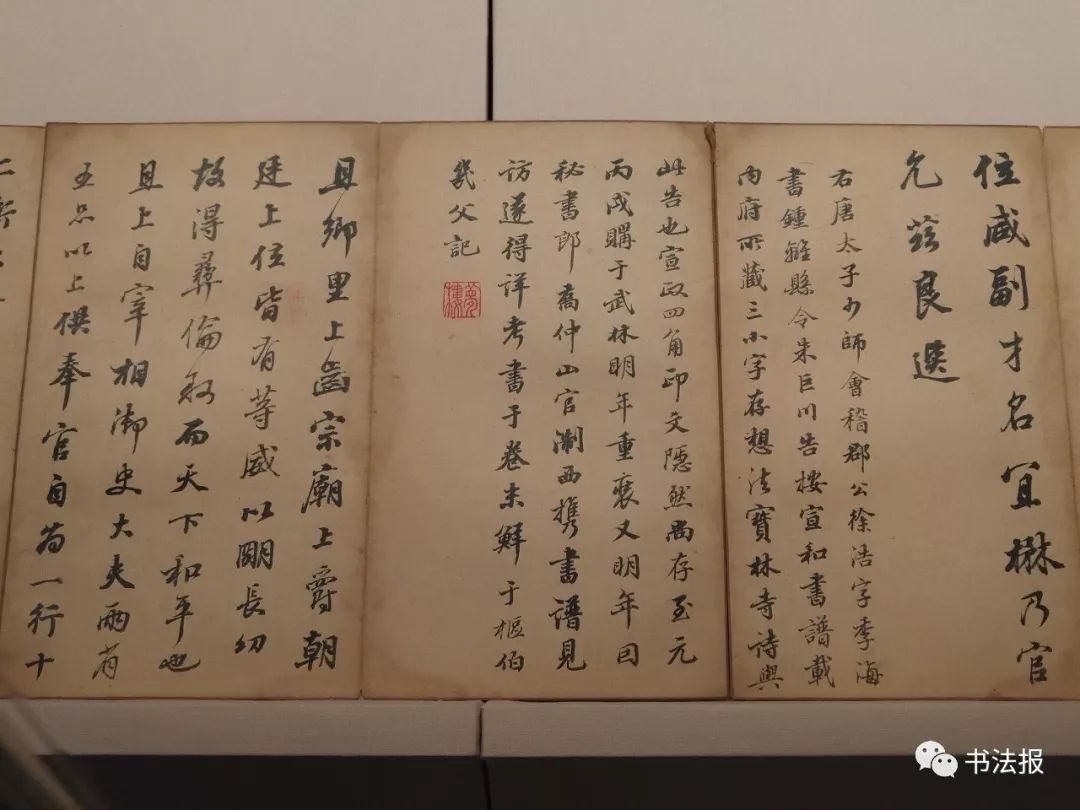 位咸副才名宜楙乃官
允茲良選
右唐太子少師會稽郡公徐浩字季海
書鍾離縣令朱巨川告按宣和書譜載
內府所藏三小字存想法寶林寺詩與
此告也宣政四角印文隱然尚存至元
丙戌購于武林明年重裝又明年因
秘書郎喬仲山官淛西攜書譜見
訪遂得詳考書于卷末鮮于樞伯
幾父記
夢樓
且鄉里上齒宗廟上爵朝
廷上位皆有等威以明長幼
故得彝倫敘而天下和平也
且上自宰相御史大夫兩省
五品以上供奉官自為一行十
二衛
书法报